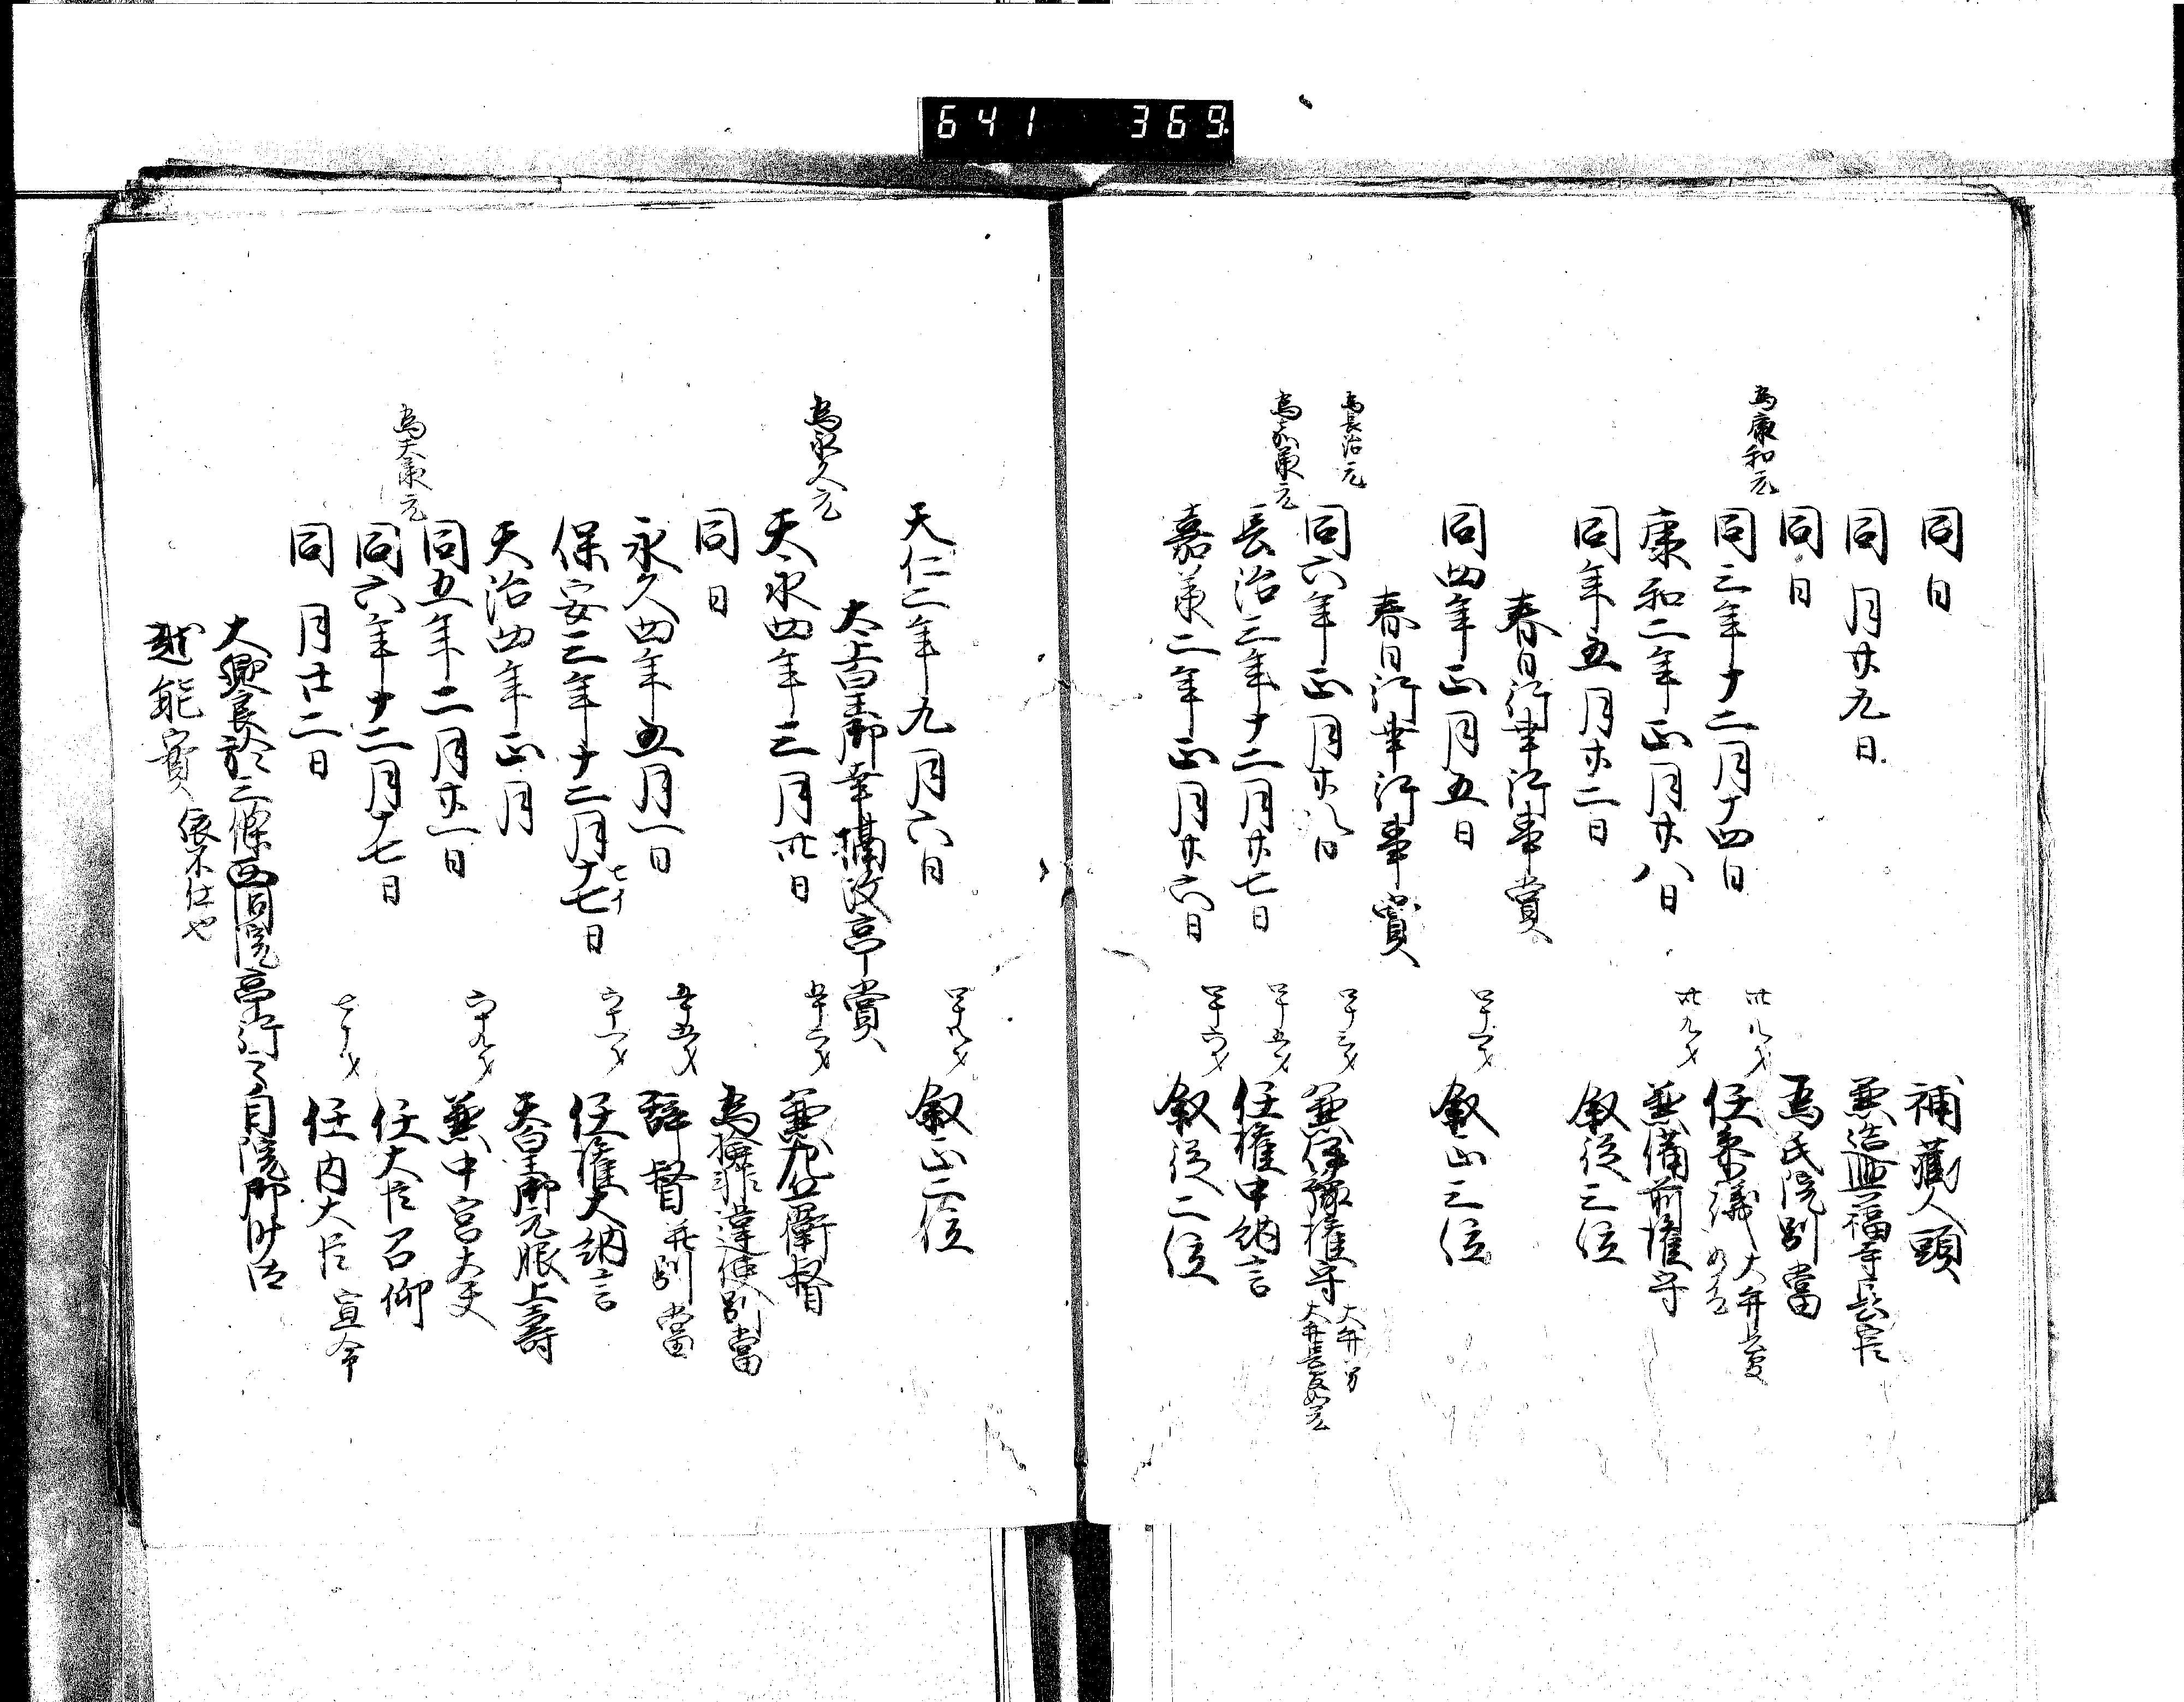 641 369
同日 補蔵人頭
同月廿九日 兼造興福寺長官
同日 為氏院別當
為康和元
同三年十二月十四日 卅八才 任参議 大弁長官如元
康和二年正月廿八日 卅九才 兼備前權守
同年五月廿二日 叙従三位
春日行幸行事賞
同四年正月五日 四十一才 叙正三位
春日行幸行事賞
為長治元
同六年正月廿八日 四十三才 兼伊豫權守
為嘉承元
長治三年十二月廿七日 四十五才 任權中納言
嘉承二年正月廿六日 四十六才 叙従二位
天仁二年九月六日 四十八才 叙正二位
太上皇御幸 亭賞
為永久元
天永四年三月卅日 五十二才 兼左兵衛督
同日 為檢非違使別當
永久四年五月一日 五十五才 辞督并別當
保安三年十二月十七日 七イ 六十一才 任權大納言
天治四年正月 天皇御元服上壽
同五年二月廿一日 六十九才 兼中宮大夫
為天承元
同六年十二月十七日 任大臣召仰
同月廿二日 七十才 任内大臣 宣命
大饗 於二條 西洞院亭行之
超能實 依不仕也